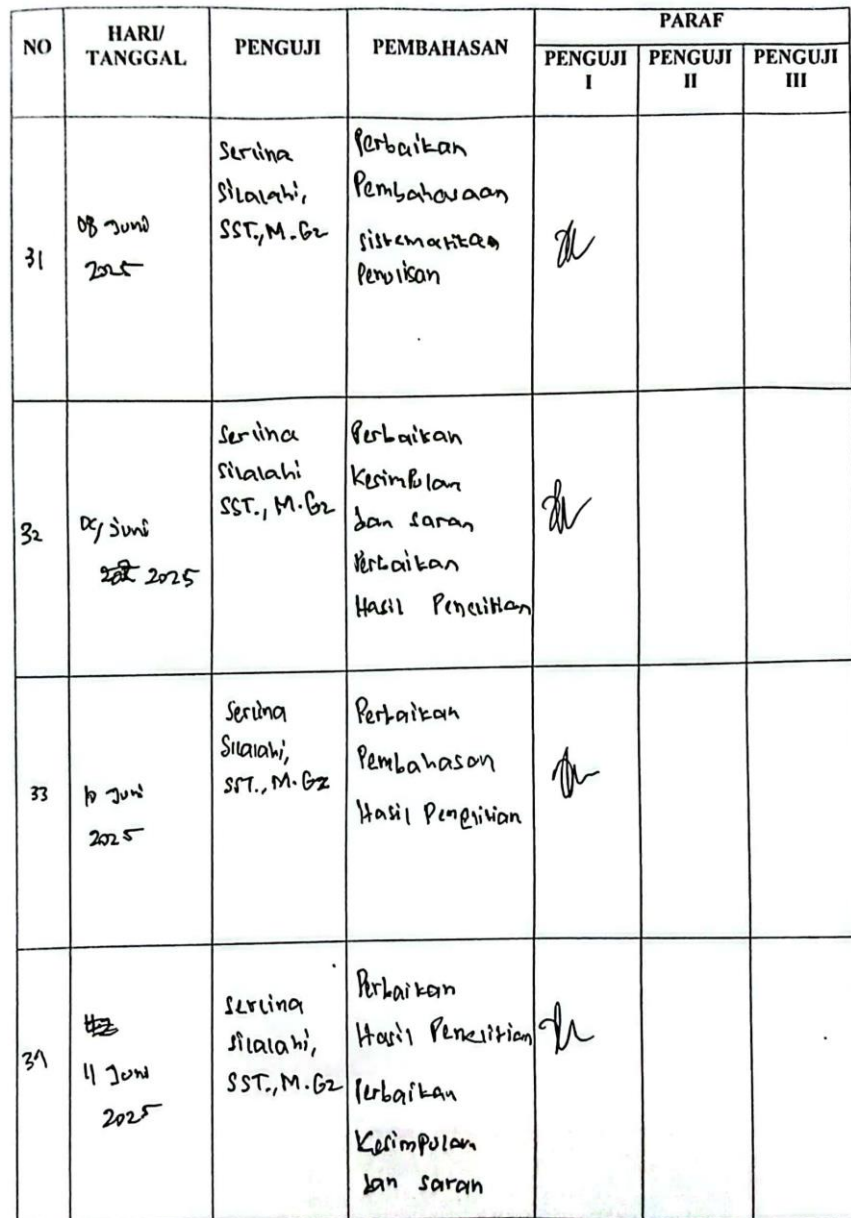 NO HARI/ TANGGAL PENGUJI PEMBAHASAN PARAF
PENGUJI I PENGUJI II PENGUJI III
31
08 Juni
2025
Serlina
Silalahi,
SST., M.Gz
Perbaikan
Pembahasaan
sistematikan
Penulisan
32
Juni
2025
Serlina
Silalahi
SST., M.Gz
Perbaikan
Kesimpulan
dan saran
Perbaikan
Hasil Penelitian
33
10 Juni
2025
Serlina
Silalahi,
SST., M.Gz
Perbaikan
Pembahasan
Hasil Penelitian
34
11 Juni
2025
Serlina
Silalahi,
SST., M.Gz
Perbaikan
Hasil Penelitian
Perbaikan
Kesimpulan
dan saran